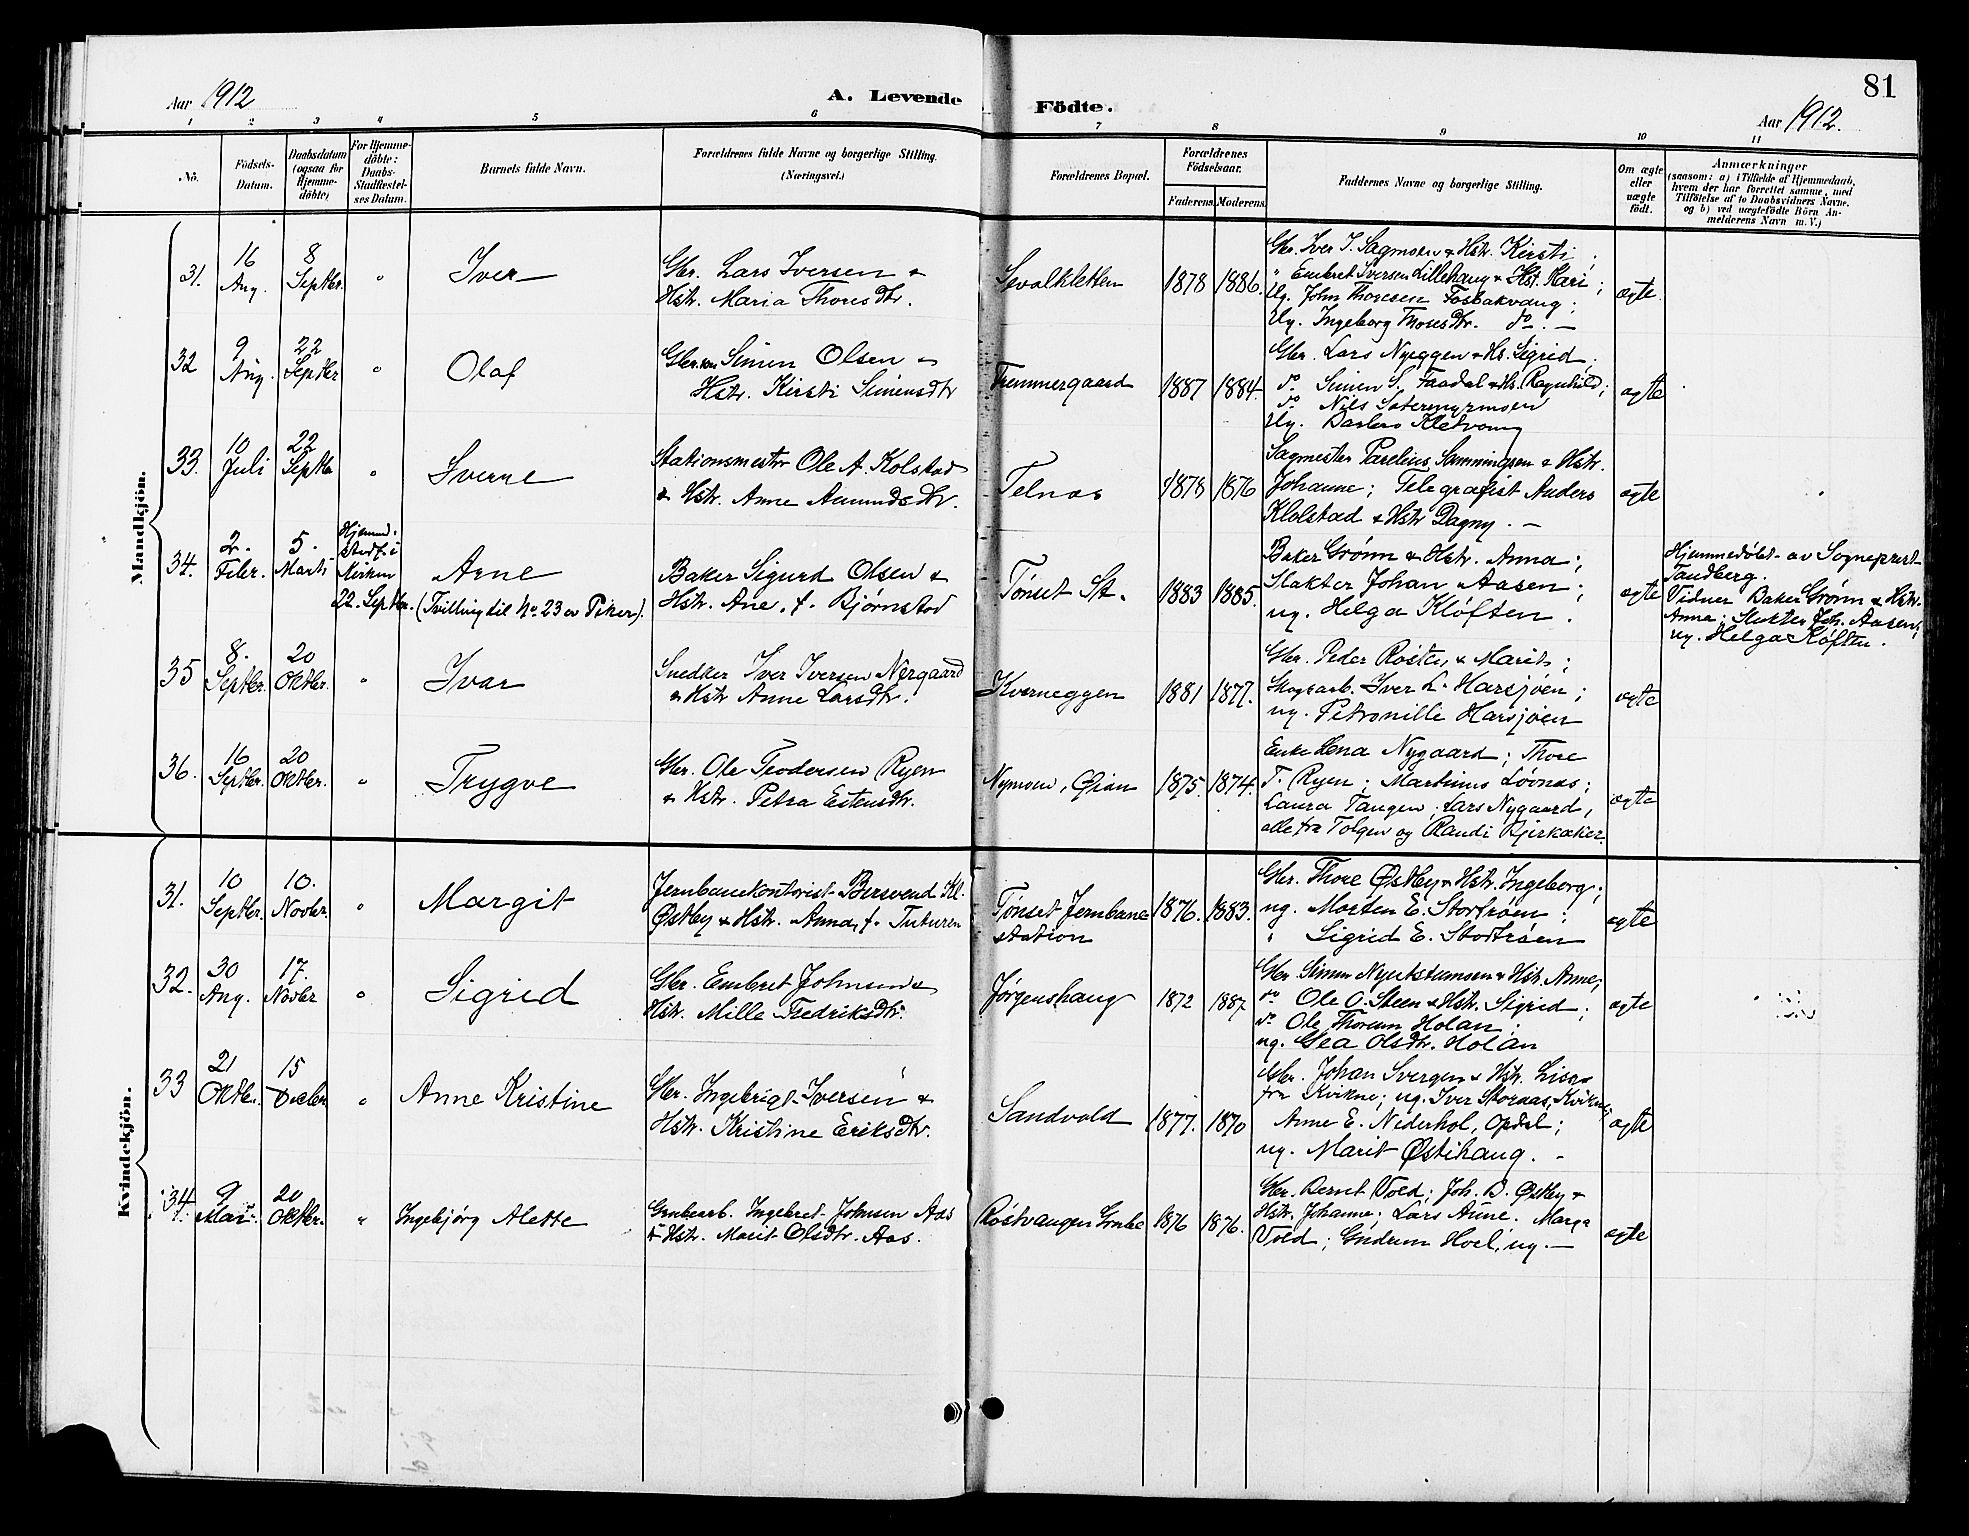 81
Aar 1912
A. Levende Födte.
Aar 1912.
1 2 3 4 5 6 7 8 9 10 11
No.
Födsels-Datum.
Daabsdatum (ogsaa for Hjemme-döbte)
For Hjemme-döbte: Daabs-Stadfæstel-ses Datum.
Barnets fulde Navn.
Forældrenes fulde Navne og borgerlige Stilling.
(Næringsvei.)
Forældrenes Bopæl.
Forældrenes Födselsaar.
Faderens. Moderens.
Faddernes Navne og borgerlige Stilling.
Om ægte eller uægte födt.
Anmærkninger
(saasom: a) i Tilfælde af Hjemmedaab,
hvem der har forrettet samme, med
Tilföielse af to Daabsvidners Navne.
og b) ved uægtefödte Börn An-
melderens Navn m. V.)
Mandkjön.
31. 16 Aug. 8 Septbr. " Iver
Gbr. Lars Iversen &
Hstr. Maria Thoresdtr.
1878 1886.
Gbr. Iver I. Sagmoen & Hstr. Kirsti;
" Embret Iversen Lillehaug & Hst. Kari;
Ug. John Thoresen Fosbakvang;
Ug. Ingeborg Thoresdtr. do. —
ægte
32 9 Aug. 22 Septbr " Olaf
Simen Olsen &
Hstr. Kirsti Simensdtr
1887 1884.
Gbr. Lars Nyeggen & Hs. Sigrid;
do Simen S. Faadal & Hs. Ragnhild;
do Nils
Ug.
ægte
33. 10 Juli 22 Septbr " Sverre
Stationsmester Ole A. Kolstad
& Hstr. Anne Aamundsdtr.
Telnes
1878 1876
Sagmester Parelius & Hstr.
Johanne; Telegrafist Anders
Kolstad & Hstr Dagny. —
ægte
34. 2. Febr. 5. Marts
Hjemmed: stadf. i Kirken 22. Septbr.
Arne
(Trilling til No 23 av Piker).
Baker Sigurd Olsen &
Hstr. Ane, f. Bjørnstad
Tønset St.
1883 1885.
Baker Grønn & Hstr. Anna;
Slakter Johan Aasen;
ug. Helga Kløften.
ægte
Hjemmedøbt av Sogneprest
Tandberg.
Vidner Baker Grønn & Hstr.
Anna; Slakter Joh. Aasen;
ug. Helga Kløften.
35 8. Septbr. 20 Oktbr. " Ivar
Snedker Iver Iversen Nergaard
& Hstr Anne Larsdtr.
Kverneggen
1881 1877.
Gbr. Peder Røste, & Marit;
Skogsarb. Iver L. Harsjøen;
ug. Petronille Harsjøen
ægte
36. 16 Septbr. 20 Oktbr. " Trygve
Gbr. Ole Teodersen Ryen
& Hstr. Petra Estensdtr.
Nymoen, Øian
1875. 1874.
Enke Lena Nygaard; Thore
T. Ryen; Martinus Løvnæs;
Laura Tangen; Lars Nygaard,
alle fra Tolgen og Randi Bjerkaker.
ægte
Kvindekjön.
31. 10 Septbr. 10. Novbr. " Margit
Jernbanekontorist Bersvend Kl.
Østby & Hstr. Anna, f. Tuturen
Tønset Jernbane
station
1876. 1883.
Gbr. Thore Østby & Hstr. Ingeborg;
ug. Morten E. Stortrøen;
" Sigrid E. Stortrøen
ægte
32. 30 Aug. 17. Novbr " Sigrid
Gbr. Embret Johnsen &
Hstr. Mille Fredriksdtr.
Jørgenshaug
1872 1887
Gbr Simen & Hstr. Anne;
do Ole O. Steen & Hstr. Sigrid;
do Ole Thoresen Holan;
ug. Gea Olsdtr. Holan
ægte
33 21 Oktbr. 15 Decbr. " Anne Kristine
Gbr. Ingebrigt Iversen &
Hstr. Kristine Eriksdtr.
Sandvold
1877. 1870
Gbr. Johan Svergen & Hstr. Lisa
fra Kvikne; ug. Iver Stornæs, Kvikne;
Anne E. Nederhol, Opdal;
ug. Marit Østihaug. -
ægte
34. 9 Mai. 20 Oktbr. " Ingebjørg Alette
Grubearb. Ingebret Johnsen Aas
& Hstr. Marit Olsdtr. Aas.
Røstvangen Grube
1876 1876.
Gbr. Bernt Vold; Joh. B. Østby &
Hstr. Johanne; Lars Aune; Marga
Vold; Gudrun Hoel, ug. —
ægte